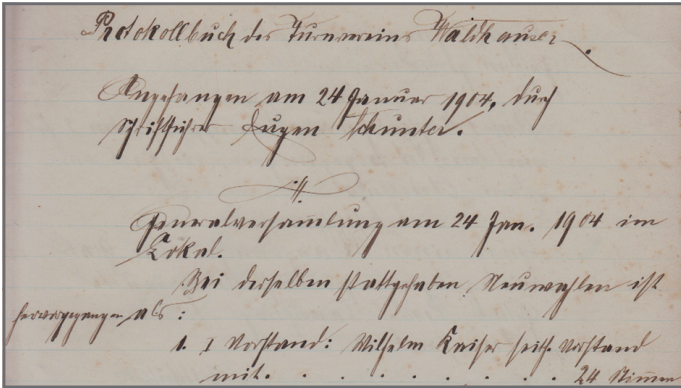 Protokollbuch des Turnvereins Waldhausen.
Angefangen am 24 Januar 1904, durch
Schriftführer Eugen Schunter.
Generalversam̅lung am 24 Jan. 1904 im
Lokal.
Bei derselben stattgehaben Neuwahlen ist
hervorgegangen als:
1. I Vorstand: Wilhelm Kaiser seith. Vorstand
mit. . . . . . . . . . 24 Stim̅en